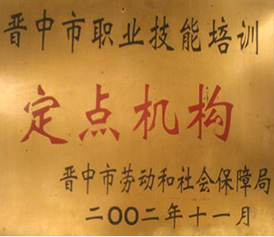 晋中市职业技能培训
定点机构
晋中市劳动和社会保障局
二〇〇二年十一月